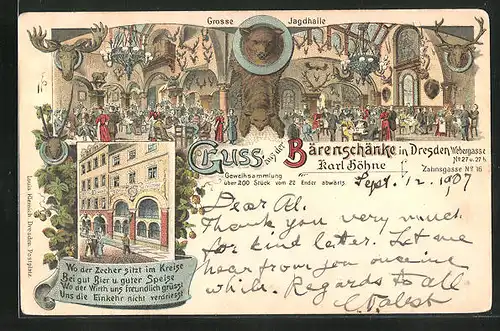 Grosse Jagdhalle
Gruss aus der Bärenschänke in Dresden Webergasse
No 27 u. 27 b
Karl Höhne Zahnsgasse No 16
Geweihsammlung
über 200 Stück vom 22 Ender abwärts.
Sept. 12 1907
Dear Al.
Thank you very much
for kind letter. Let me
hear from you once in a
while. Regards to all
Wo der Zecher sitzt im Kreise
Bei gut Bier u. guter Speise
Wo der Wirth uns freundlich grüsst
Uns die Einkehr nicht verdriesst
Louis Glaser, Dresden, Postplatz